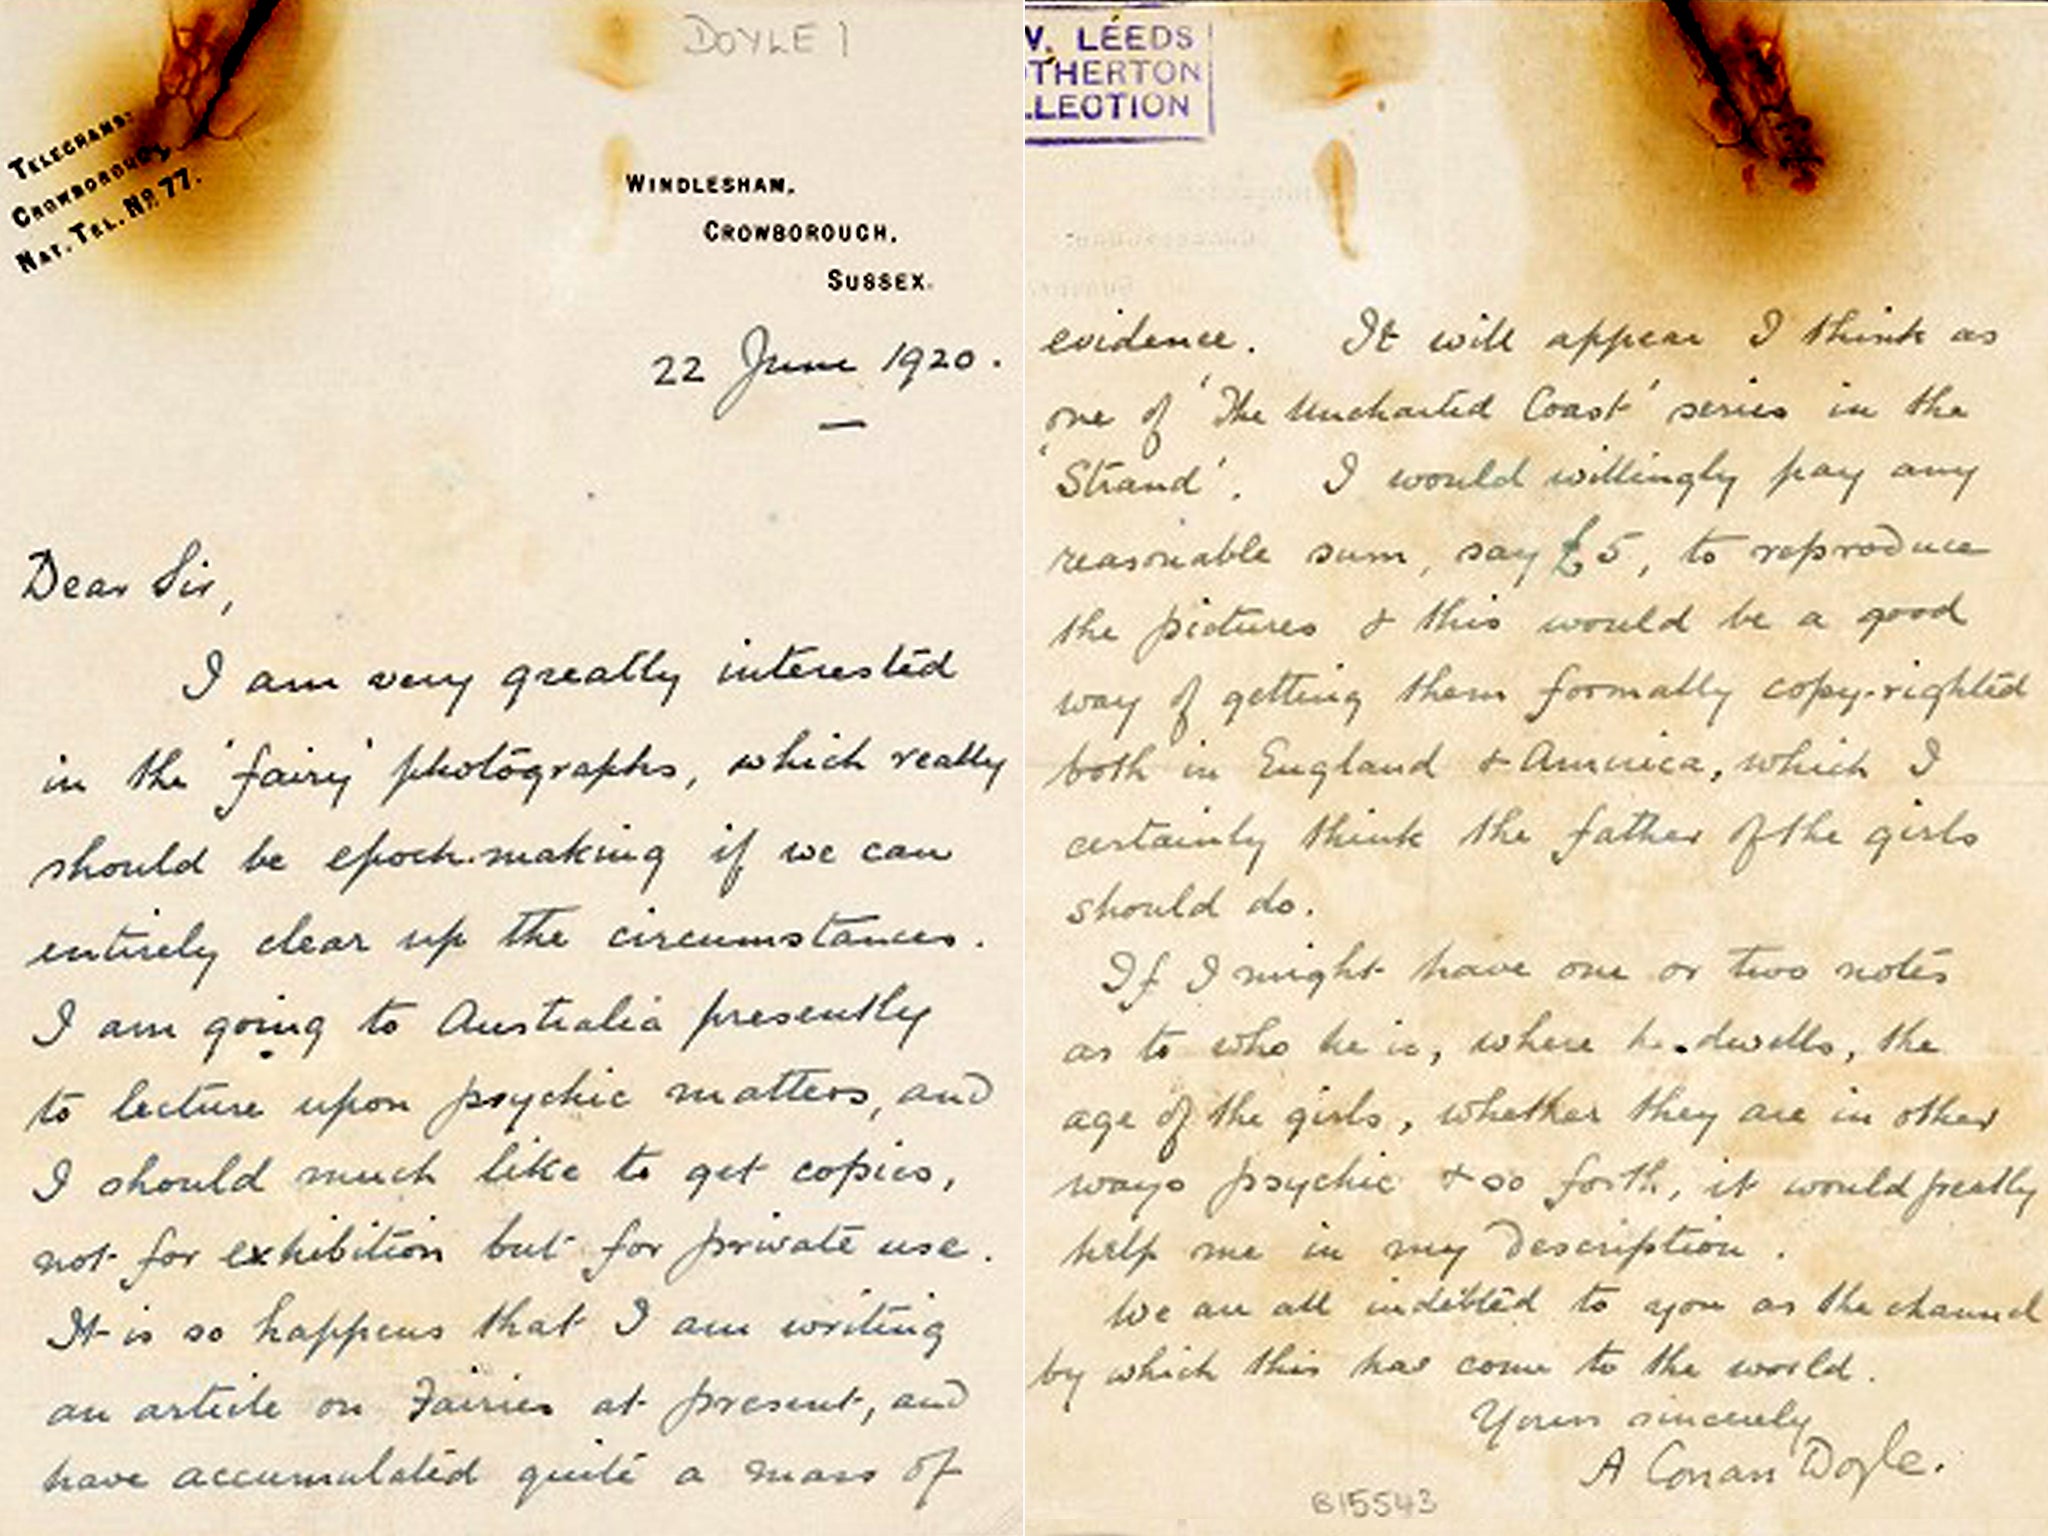 DOYLE 1
TELEGRAMS:
CROWBOROUGH.
NAT. TEL. No. 77.
WINDLESHAM,
CROWBOROUGH,
SUSSEX.
22 June 1920.
Dear Sir,
I am very greatly interested
in the 'fairy' photographs, which really
should be epoch-making if we can
entirely clear up the circumstances.
I am going to Australia presently
to lecture upon psychic matters, and
I should much like to get copies,
not for exhibition but for private use.
It is so happens that I am writing
an article on Fairies at present, and
have accumulated quite a mass of
W. LEEDS
OTHERTON
LLECTION
evidence. It will appear I think as
one of 'The Uncharted Coast' series in the
'Strand'. I would willingly pay any
reasonable sum, say £5, to reproduce
the pictures & this would be a good
way of getting them formally copy-righted
both in England & America, which I
certainly think the father of the girls
should do.
If I might have one or two notes
as to who he is, where he dwells, the
age of the girls, whether they are in other
ways psychic & so forth, it would greatly
help me in my description.
We are all indebted to you as the channel
by which this has come to the world.
Yours sincerely
A Conan Doyle.
B15543